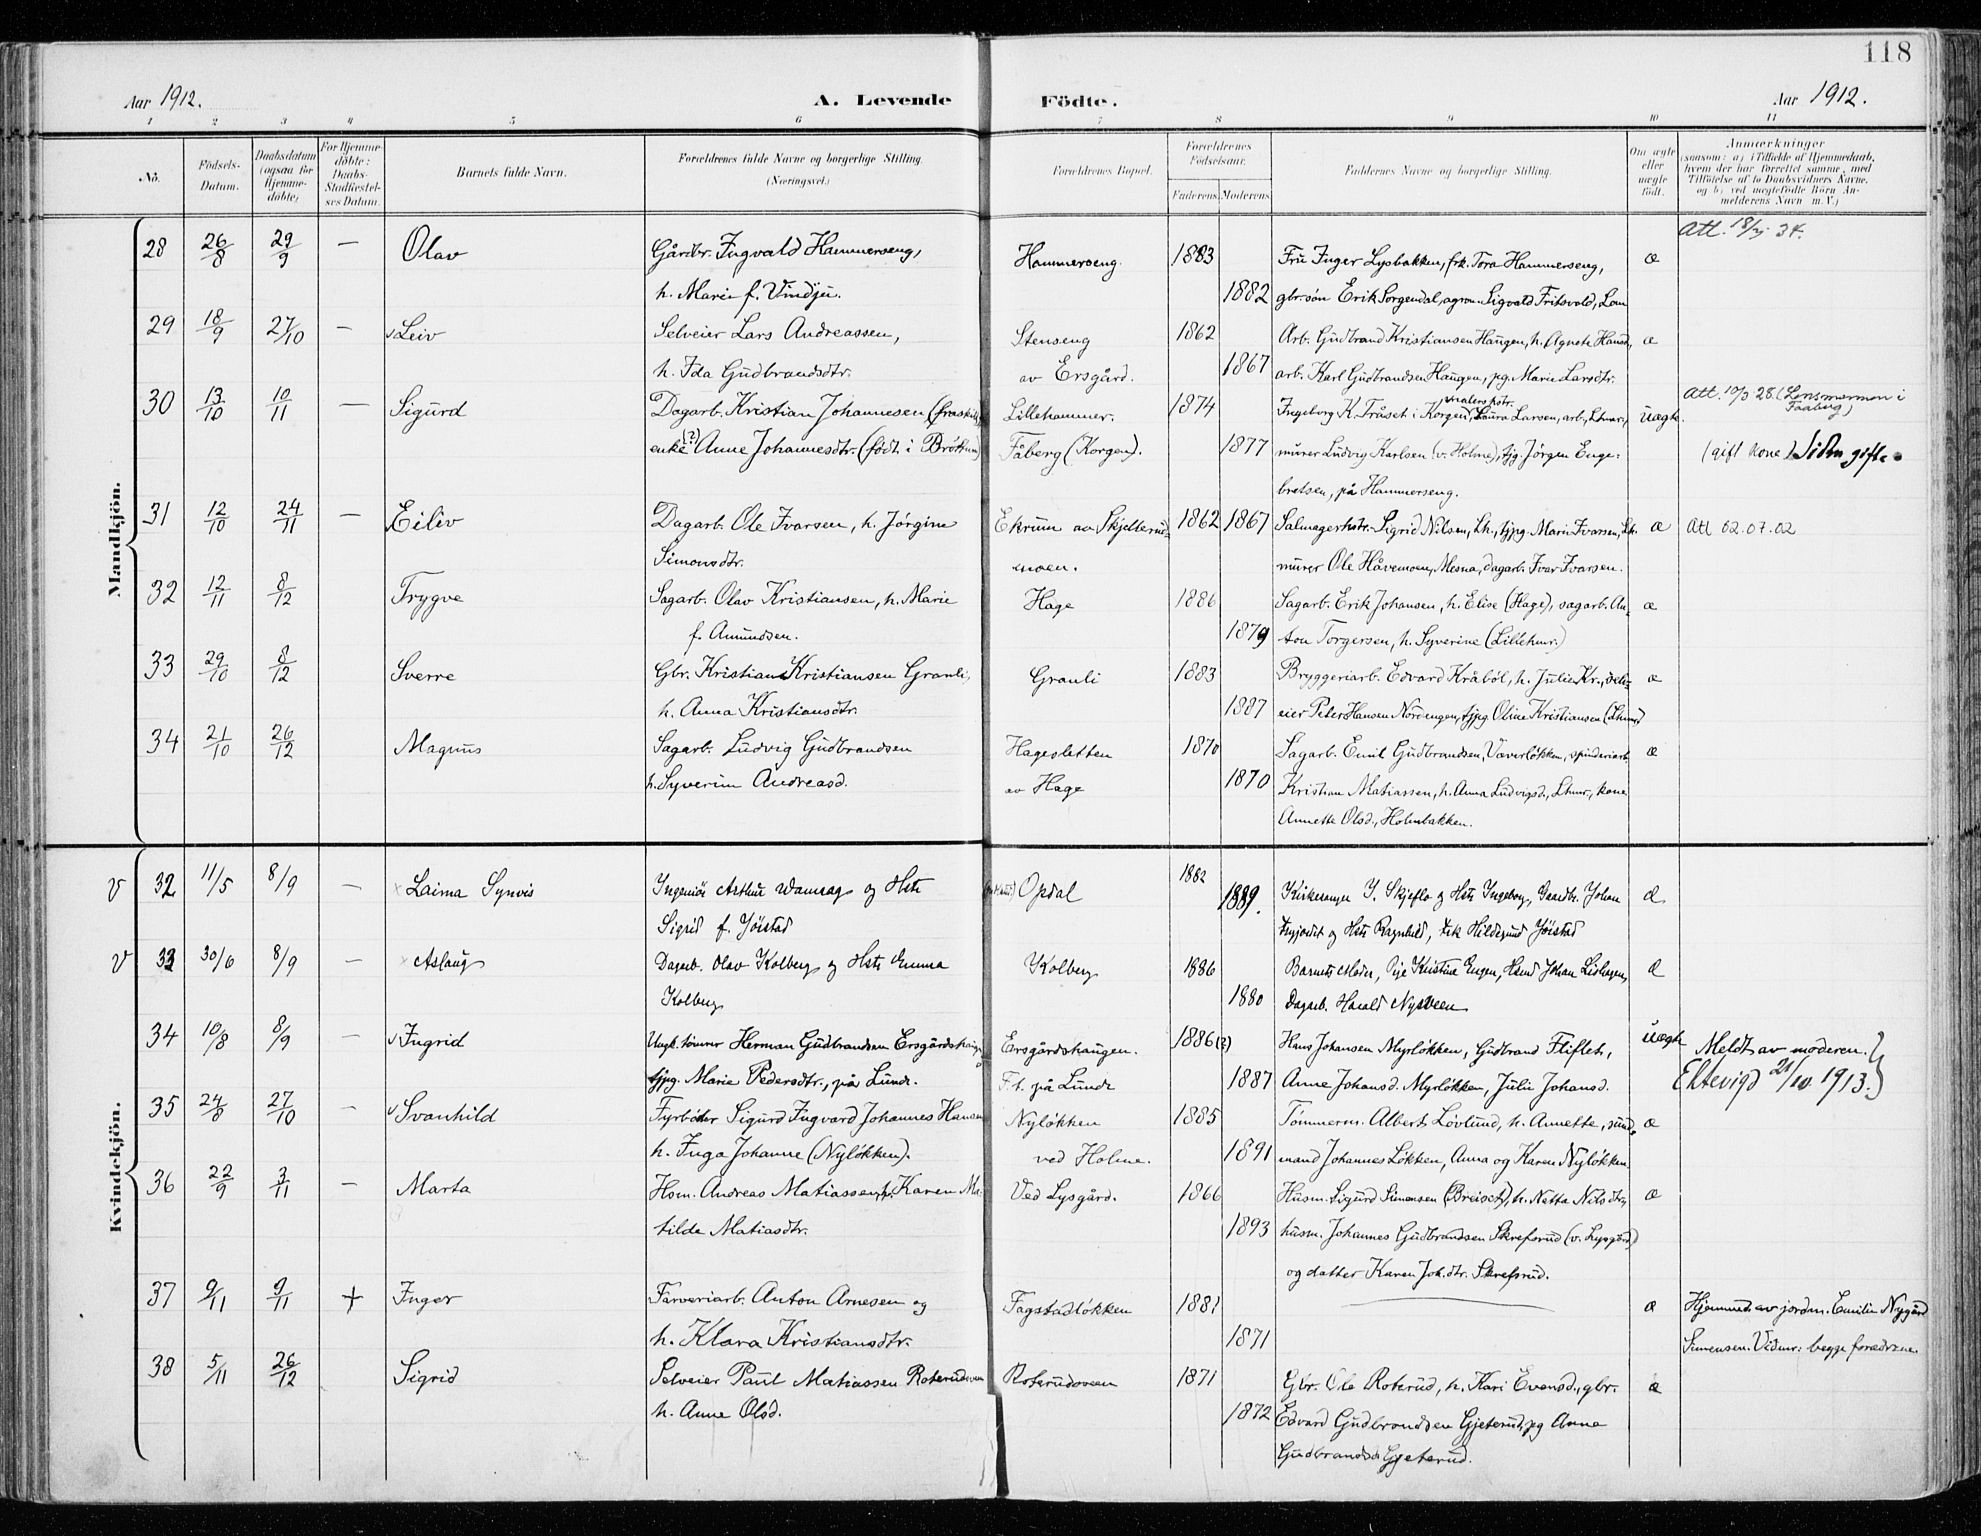 118
Aar 1912.
A. Levende Födte.
Aar 1912.
1 2 3 4 5 6 7 8 9 10 11
No.
Födsels-Datum.
Daabsdatum (ogsaa for Hjemme-döbte)
For Hjemme-döbte: Daabs-Stadfæstel-ses Datum.
Barnets fulde Navn.
Forældrenes fulde Navne og borgerlige Stilling. (Næringsvei.)
Forældrenes Bopæl.
Forældrenes Födselsaar.
Faderens. Moderens.
Faddernes Navne og borgerlige Stilling.
Om ægte eller uægte födt.
Anmærkninger
(saasom: a) i Tilfælde af Hjemmedaab,
hvem der har forrettet samme, med
Tilföielse af to Daabsvidners Navne,
og b) ved uægtefödte Börn An-
melderens Navn m. V.)
Mandkjön.
Att. 18/ 34.
28 26/8 29/9 — Olav Gårdbr. Ingvald Hammerseng, Hammerseng. 1883 Fru Inger Lysbakken, frk. Tora Hammerseng, æ
h. Marie f. Vindju. 1882 gbr.søn Erik Sorgendal, agron. Sigvald Fritsvold, Lom
29 18/9 27/10 — Leiv Selveier Lars Andreassen, Stenseng 1862 Arb. Gudbrand Kristiansen Haugen, h. Agnete Hansd., æ
h. Ida Gudbrandsdtr. av Ersgård. 1867 arb. Karl Gudbrandsen Haugen, pg. Marie Larsdtr.
30 13/10 10/11 — Sigurd Dagarb. Kristian Johannesen (fraskilt) Lillehammer. 1874 Ingeborg K. Tråset i Korgen, Laura Larsen, arb., Lhmr., uægte. Att. 10/3 28. (Lensmannen i Faaberg)
enke (?) Anne Johannesdtr. (født i Brøttum) Fåberg (Korgen). 1877 murer Ludvig Karlsen (v. Holme), tjg. Jørgen Enge- (gift kone) Siden gifte
bretsen, på Hammerseng.
31 12/10 24/11 — Eiliv Dagarb. Ole Ivarsen, h. Jørgine Ekrum av Skjelterud- 1862 1867 Salmagerhstr. Sigrid Nilsen, Lh., tjpg. Marie Ivarsen, Lh. æ Att 02.07.02
Simonsdtr. moen. murer Ole Håvemoen, Mesna, dagarb. Ivar Ivarsen.
32 12/11 8/12 Trygve Sagarb. Olav Kristiansen, h. Marie Hage 1886 Sagarb. Erik Johansen, h. Elise (Hage), sagarb. An- æ
f. Amundsen. 1879 ton Torgersen, h. Syverine (Lillehmr.)
33 29/10 8/12 Sverre Gbr. Kristian Kristiansen Granli, Granli 1883 Bryggeriarb. Edvard Kråbøl, h. Julie Kr., selv- æ
h. Anna Kristiansdtr. 1887 eier Peter Hansen Nordengen, tjpg. Oline Kristiansen (Lhmr)
34 21/10 26/12 Magnus Sagarb. Ludvig Gudbrandsen Hagesletten 1870 Sagarb. Emil Gudbrandsen, Væverløkken, spinderiarb. æ
h. Syverine Andreasd. av Hage 1870 Kristian Matiassen, h. Anna Ludvigsd., Lhmr., kone
Annette Olsd., Holmbakken.
Kvindekjön.
V 32 11/5 8/9 — Laima Synvis Ingeniør Arthur og Hstr Opdal 1882 1889. Kirkesanger I. Skjeflo og Hstr Ingeborg, Gaardbr. Johan æ
Sigrid f. Jøistad og Hstr Ragnhild, frk Hildegund Jøistad
V 33 30/6 8/9 — Aslaug Dagarb. Olav Kolberg og Hstr Emma Kolberg 1886 Barnets Moder, Pige Kristina Engen, Hsmd Johan Lishagen, æ
Kolberg 1880 Dagarb. Harald Nysveen
34 10/8 8/9 — Ingrid Ungk. tømrer Herman Gudbrandsen Ersgårdshaugen Ersgårdshaugen. 1886 (?) Hans Johansen Myrløkken, Gudbrand Fliflet, uægte Meldt av moderen.
tjpg. Marie Pedersdtr., på Lunde. F.t. på Lunde 1887 Anne Johansd. Myrløkken, Julie Johansd. Ektevigd 21/10 1913.
35 24/8 27/10 — Svanhild Fyrbøder Sigurd Ingvard Johannes Hansen Nyløkken 1885 Tømmerm. Albert Løvlund, h. Annette, æ
h. Inga Johanne (Nyløkken). ved Holme. 1891 mand Johannes Løkken, Anna og Karen Nyløkken
36 22/9 3/11 — Marta Hsm. Andreas Matiassen, h. Karen Ma- Ved Lysgård. 1866 Husm. Sigurd Simensen (Breiset), h. Netta Nilsdtr., æ
tilde Matiasdtr. 1893 husm. Johannes Gudbrandsen Skrefsrud (v. Lysgård)
og datter Karen Joh.dtr. Skrefsrud.
37 9/11 9/11 + Inger Farveriarb. Anton Arnesen og Fagstadløkken 1881 æ Hjemmed. av jordm. Emilie Nygård
h. Klara Kristiansdtr. 1871 Simensen. Vidner: begge forældrene.
38 5/11 26/12 Sigrid Selveier Paul Matiassen Roterudsveen Roterudsveen 1871 Gbr. Ole Roterud, h. Kari Evensd., gbr. æ
h. Anne Olsd. 1872 Edvard Gudbrandsen Gjeterud, pg Anna
Gudbrandsd Gjeterud.